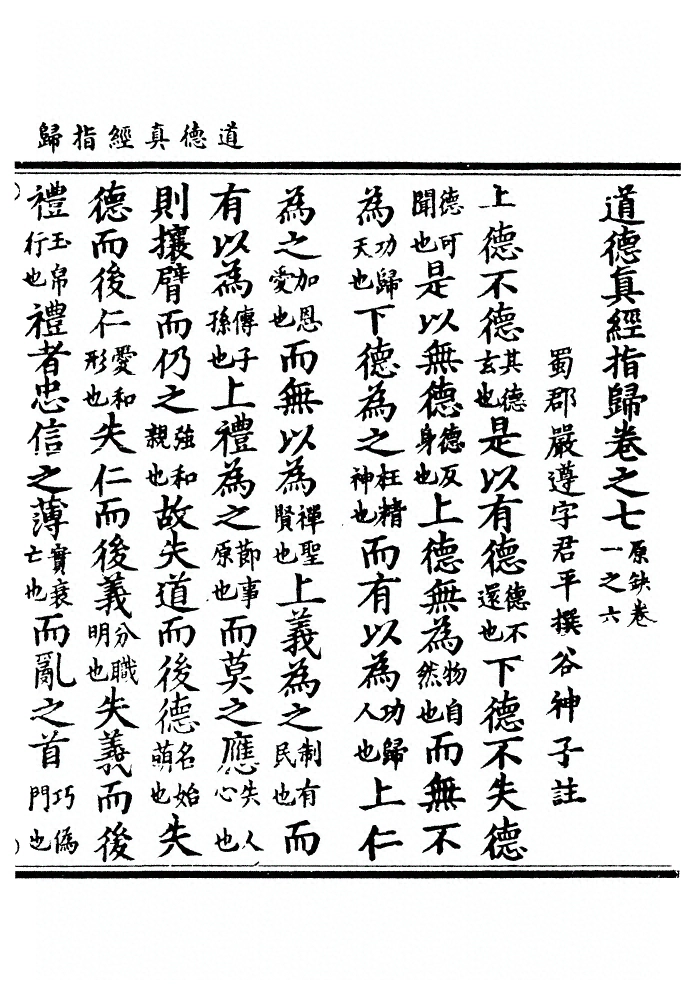 道德真經指歸
道德真經指歸卷之七原缺卷一之六
蜀郡嚴遵字君平撰谷神子註
上德不德其德玄也是以有德德不還也下德不失德
德可聞也是以無德德反身也上德無為物自然也而無不
為功歸天也下德為之枉精神也而有以為功歸人也上仁
為之加恩愛也而無以為禪聖賢也上義為之制有民也而
有以為傳子孫也上禮為之節事原也而莫之應失人心也
則攘臂而仍之強和親也故失道而後德名始萌也失
德而後仁愛和形也失仁而後義分職明也失義而後
禮玉帛行也禮者忠信之薄實衰亡也而亂之首巧偽門也